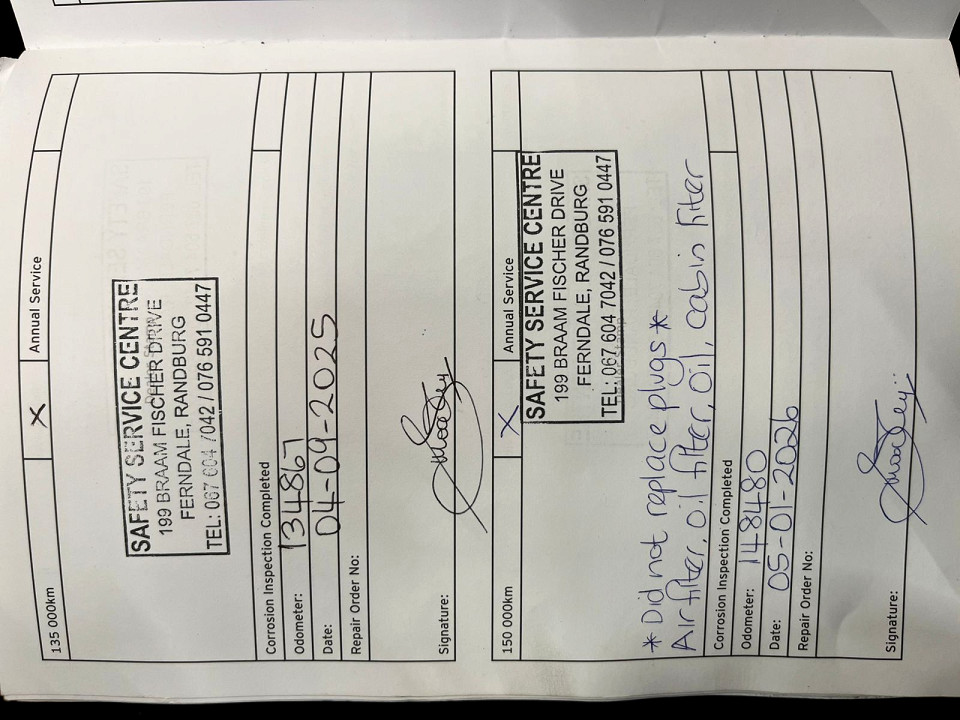 135 000km
X
Annual Service
SAFETY SERVICE CENTRE
199 BRAAM FISCHER DRIVE
FERNDALE, RANDBURG
TEL: 067 604 7042 / 076 591 0447
Corrosion Inspection Completed
Odometer: 134867
Date: 04-09-2025
Repair Order No:
Signature:
150 000km
X
Annual Service
SAFETY SERVICE CENTRE
199 BRAAM FISCHER DRIVE
FERNDALE, RANDBURG
TEL: 067 604 7042 / 076 591 0447
* Did not replace plugs *
Air filter, oil filter, oil, cabin filter
Corrosion Inspection Completed
Odometer: 148480
Date: 05-01-2026
Repair Order No:
Signature: